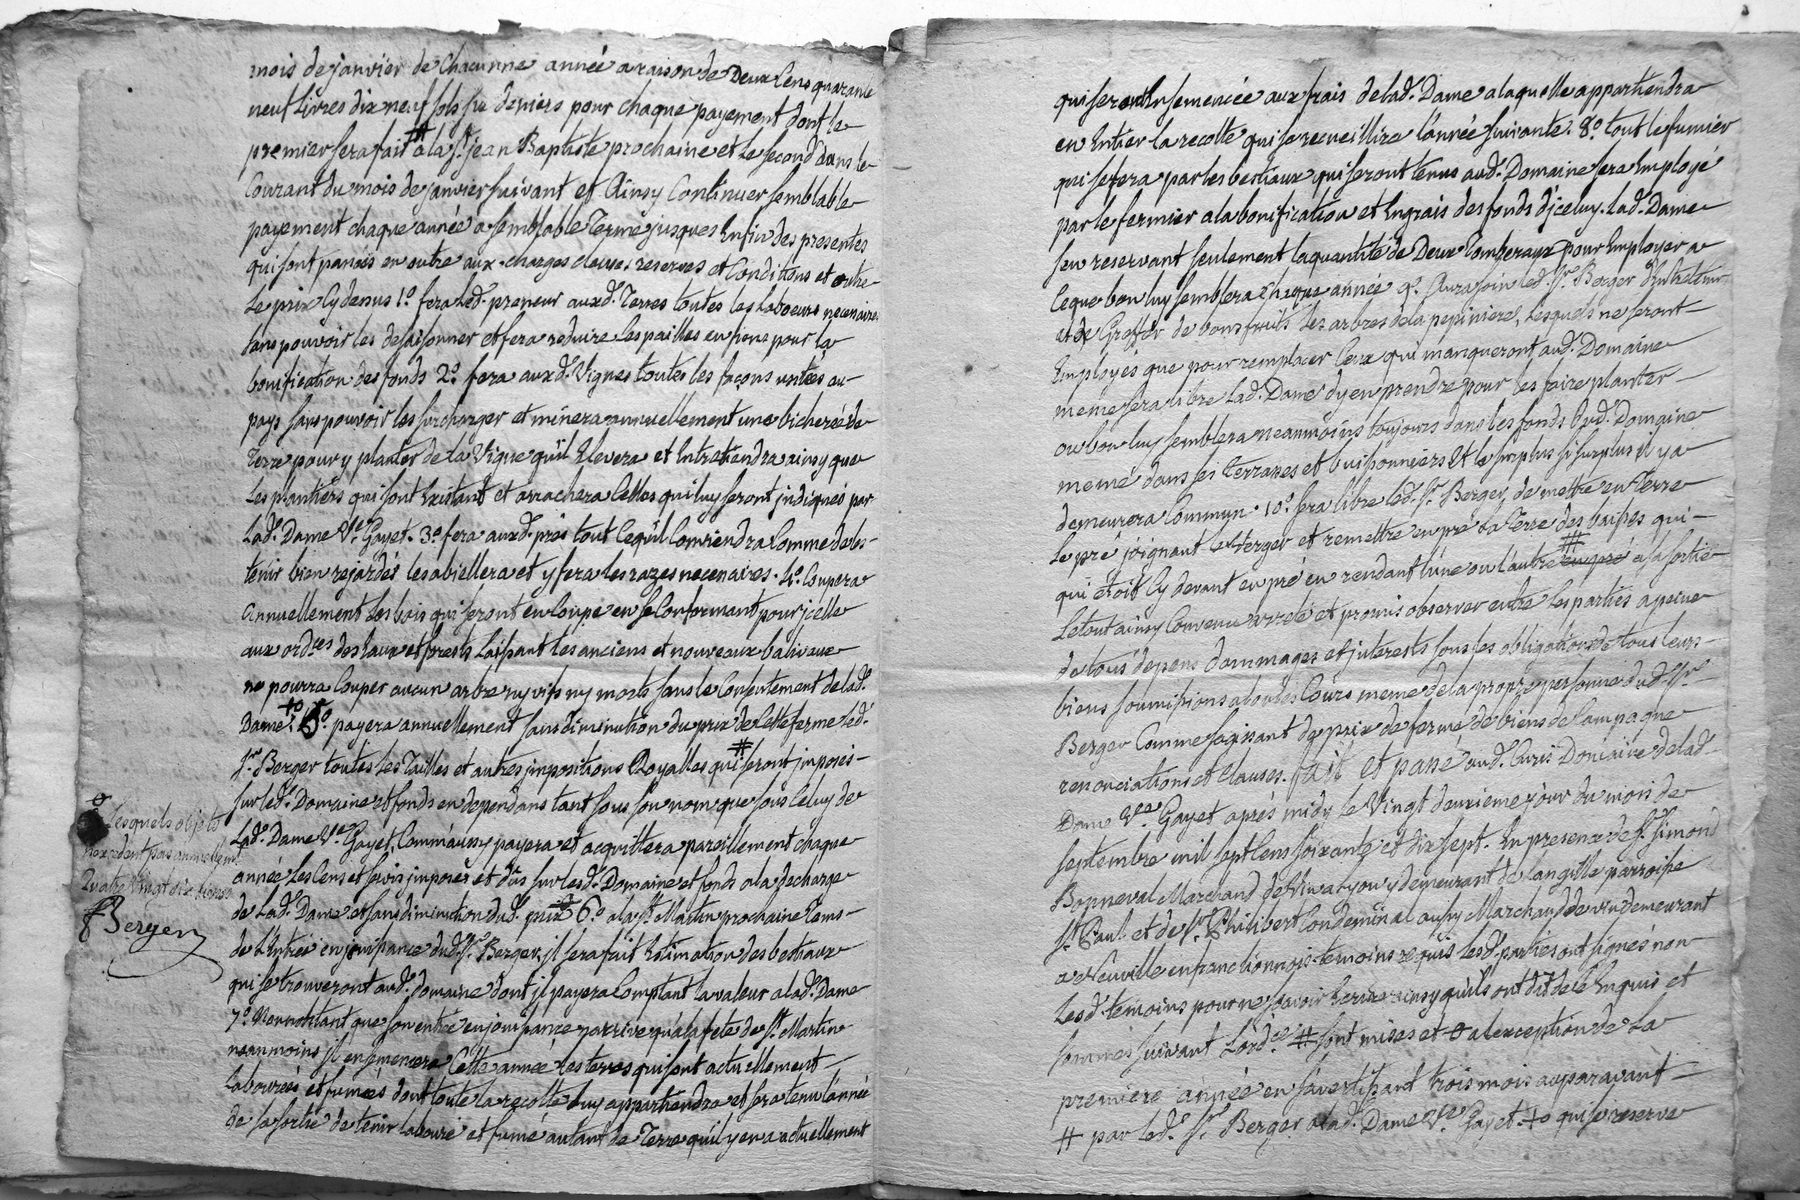 mois de janvier de Chacunne année a raison de Deux Cens quarante
neuf livres dix neuf sols six deniers pour chaque payement dont le
premier sera fait # a la St. jean Baptiste prochaine et le second dans le
Courant du mois de janvier suivant et Ainsy Continuer semblable
payement chaque année a semblable Terme jusques Enfin des presentes
qui sont passées en outre aux charges clauses reserves et Conditions et outre
Le prix Cy dessus 1o. fera led. preneur auxd. Terres toutes les Laboeurs necessaires
sans pouvoir les desaisonner et fera reduire les pailles en fiens pour la
bonification des fonds 2o. fera auxd. Vignes toutes les façons usitées au
pays sans pouvoir les surcharger et minera annuellement une bicherée de
Terre pour y planter de la Vigne qu'il Elevera et Entretiendra ainsy que
Les plantiers qui sont Existant et arrachera Celles qui luy seront jndiqués par
Lad. Dame Ve. Gayet. 3o. fera auxd. prés tout Ce qu'il Conviendra Comme de les
tenir bien regardés les abiellera et y fera les razes necessaires. 4o. Coupera
annuellement Les bois qui seront en Coupe en se Conformant pour jcelle
aux ordces des Eaux et forests Laissant les anciens et nouveaux baliveaux
ne pourra Couper aucun arbre ny vifs ny morts sans le Consentement de lad.
Dame +o 5o. payera annuellement sans diminution du prix de Cette ferme led.
Sr. Berger toutes les Tailles et autres jmpositions Royalles qui # seront jmposés
sur led. Domaine et fonds en dependans tant sous son nom que sous Celuy de
Lad. Dame Ve. Gayet, Comm'aussy payera et acquittera pareillement chaque
année Les Cens et servis jmposés et dûs sur lesd. Domaine et fonds a la decharge
de Lad. Dame et sans diminution dud. prix 6o. a la St. Martin prochaine Tems
de L'Entrée en jouissance dud. Sr. Berger, jl sera fait Estimation des bestiaux
qui se trouveront aud. domaine dont jl payera Comptant la valeur a lad. Dame
7o. Nonobstant que son entrée en jouissance n'arrive qu'a la fete de St. Martin
neanmoins jl ensemencera Cette année les terres qui sont actuellement
Labourées et fumées dont toute la recolte luy appartiendra et sera tenu l'année
de sa sortie de tenir Labouré et fumé autant de Terre qu'il y en a actuellement
Lesquels objets
n'excedent pas annuellemt.
Quatre Vingt dix livres
Berger
qui seront Ensemencée aux frais de lad. Dame a laquelle appartiendra
en Entier la recolte qui se recueillira L'année suivante. 8o. tout le fumier
qui se fera par les bestiaux qui seront tenus aud. Domaine sera Employé
par le fermier a la bonification et Engrais des fonds d'jceluy. Lad. Dame
s'en reservant seulement la quantité de Deux Tombereaux pour Employer a
Ce que bon luy semblera Chaque année 9o. Aura soin led. Sr. Berger d'Entretenir
et de Greffer de bons fruits les arbres de la pepiniere, Lesquels ne seront
Employés que pour remplacer Ceux qui manqueront aud. Domaine
meme sera libre Lad. Dame d'y en prendre pour les faire planter
ou bon luy semblera neanmoins toujours dans les fonds dud. Domaine
meme dans ses Terrasses et buissonniers Et le surplus si surplus il y a
demeurera Commun. 10o. sera libre led. Sr. Berger, de mettre en Terre
Le pré joignant Le Verger et remettre en pré La Terre des baisses qui
qui etoit Cy devant en pré en rendant L'une ou L'autre # en pré a sa sortie
Le tout ainsy Convenu arreté et promis observer entre Les parties a peine
de tous depens dommages et jnterests sous les obligations de tous leurs
biens soumissions a toutes Cours meme de la propre personne dud. Sr.
Berger Comme s'agissant de prix de ferme de biens de Campagne
renonciations et Clauses. fait et passé aud. Curis Domicile de lad.
Dame Ve. Gayet aprés midy le Vingt deuxieme jour du mois de
Septembre mil sept Cens soixante et dix sept. En presence de Sr. Simond
Bonneval Marchand de Vin a Lyon y demeurant de Langille parroisse
St. Paul. et de Sr. Philibert Condeminal aussy Marchand de vin demeurant
a Neuville en franc Lionnois temoins requis Lesd. parties ont signés non
Lesd. temoins pour ne sçavoir Ecrire ainsy qu'ils ont dit de ce Enquis et
sommés suivant L'ordce. # sont mises et a l'exception de La
premiere année en s'avertissant trois mois auparavant
# par led. Sr. Berger a lad. Dame Ve. Gayet. +o qui se reserve